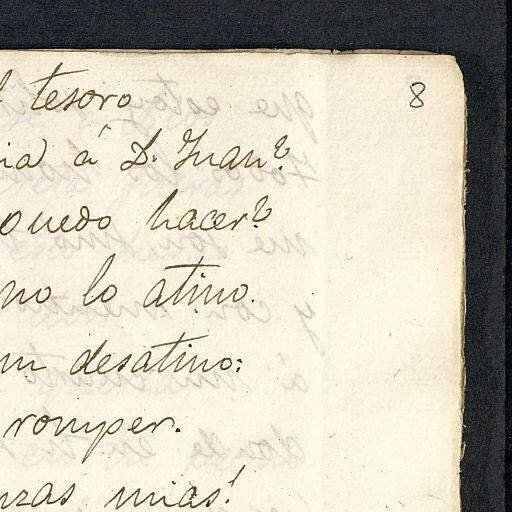 8
l tesoro
ia á D. Juan?
puedo hacer?
no lo atino.
un desatino:
romper.
nzas mias!